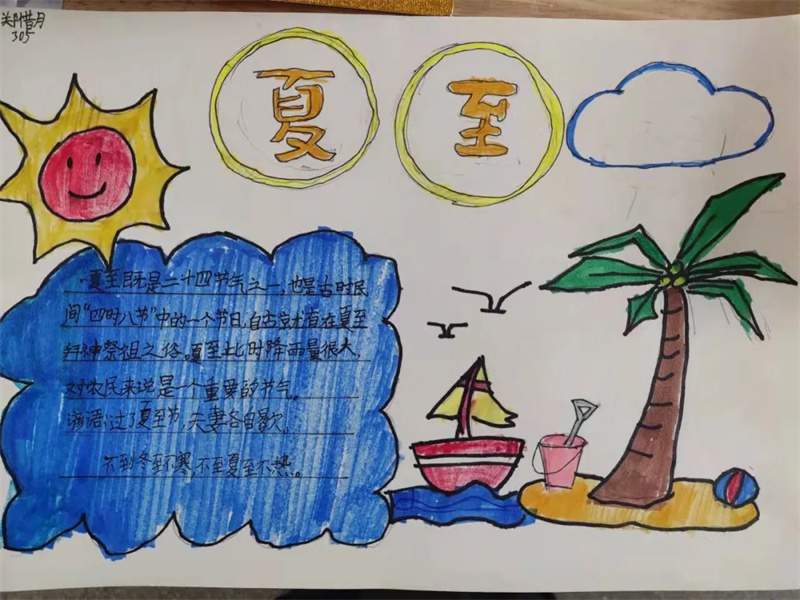 关惜月
305
夏至
夏至既是二十四节气之一,也是古时民
间“四时八节”中的一个节日,自古以来有在夏至
拜神祭祖之俗。夏至比时降雨量很大,
对农民来说是一个重要的节气。
谚语:过了夏至节,夫妻各自歇。
不到冬至不寒,不至夏至不热。